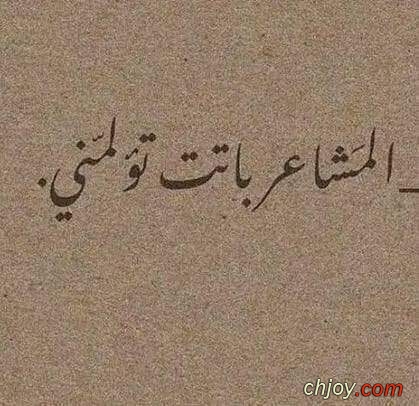 ـ المَشاعر باتت تؤلمّني.
chjoy.com